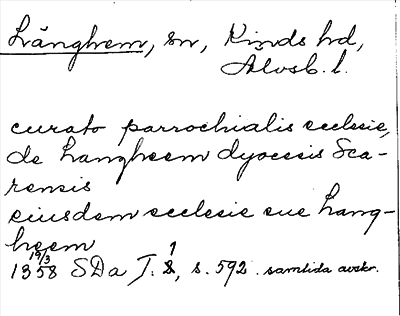 Långhem, sn, Kinds hd,
Älvsb. l.
curato parrochialis ecclesie,
de Langheem dyocesis Sca-
rensis
eiusdem ecclesie sue Lang-
heem
19/3
1358 SDa T. 8, s. 592. samtida avskr.
1